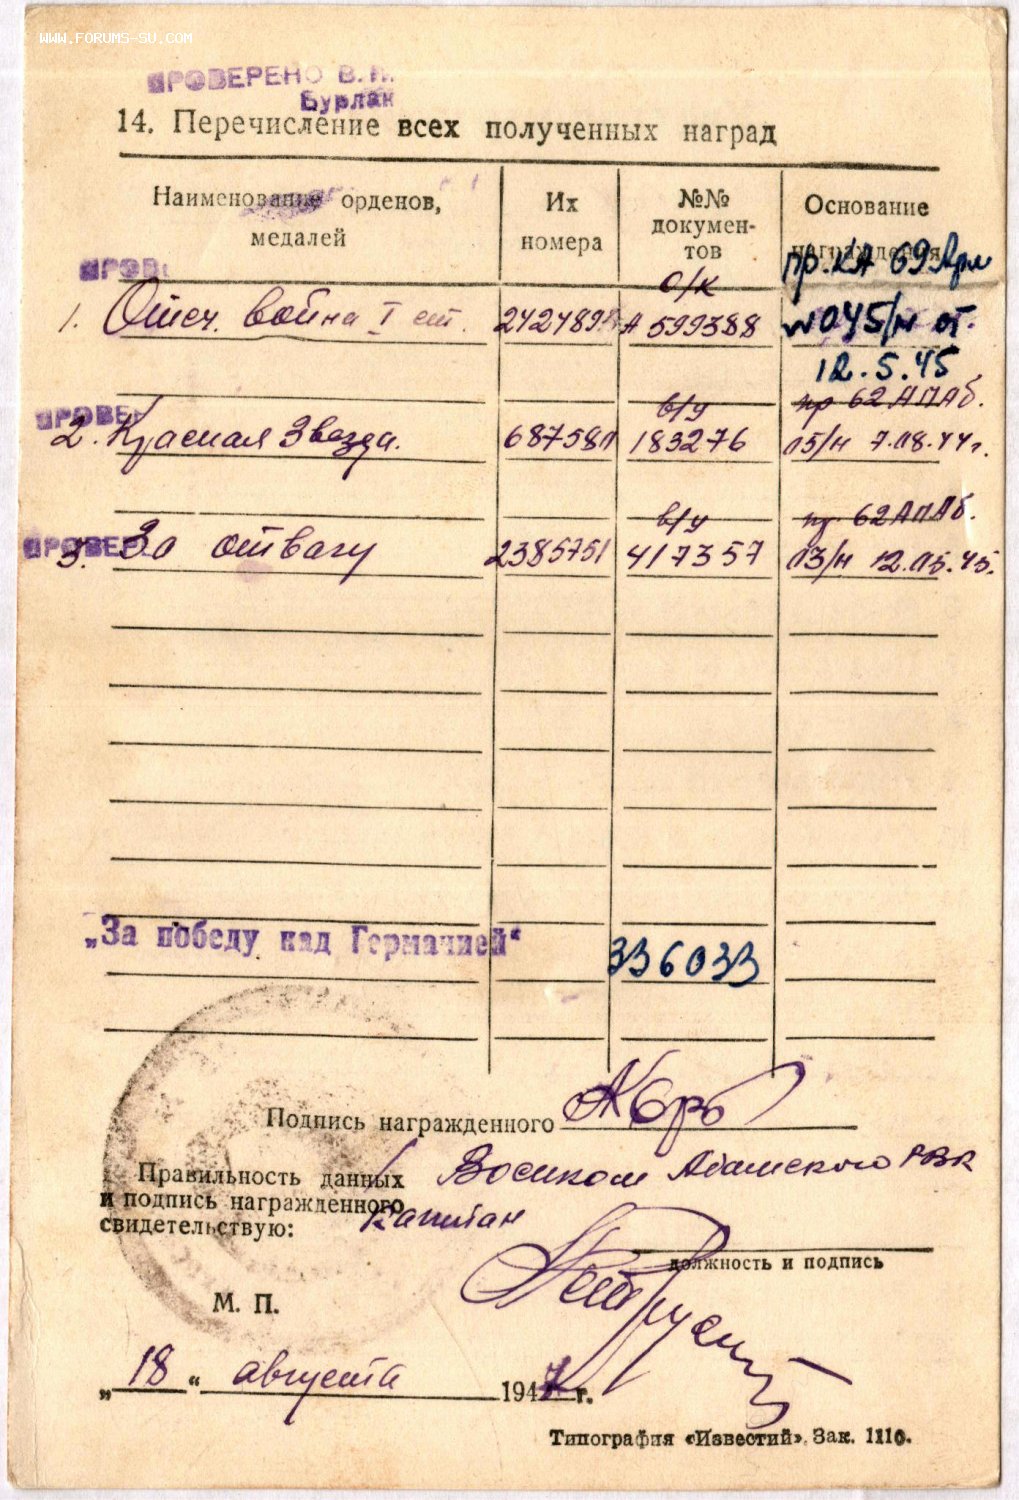 WWW.FORUMS-SU.COM
ПРОВЕРЕНО В.П.
Бурлак
14. Перечисление всех полученных наград
Наименование орденов, медалей
Их номера
№№ документов
Основание награждения
ПРОВЕ
о/к
пр. КА 69 Арм
1. Отеч. война I ст. 242489 А 599388 № 045/н от.
12.5.45
ПРОВЕР
в/у
пр 62 АПАб.
2. Красная Звезда. 687581 183276 05/н 7.08.44г.
ПРОВЕР
в/у
пр. 62 АПАб.
3. За отвагу 2385751 417357 03/н 12.05.45.
„За победу над Германией“ 336033
Подпись награжденного
Правильность данных
и подпись награжденного
свидетельствую:
Военком РВК
Капитан
должность и подпись
М. П.
„18“ августа 1947 г.
Типография «Известий». Зак. 1110.